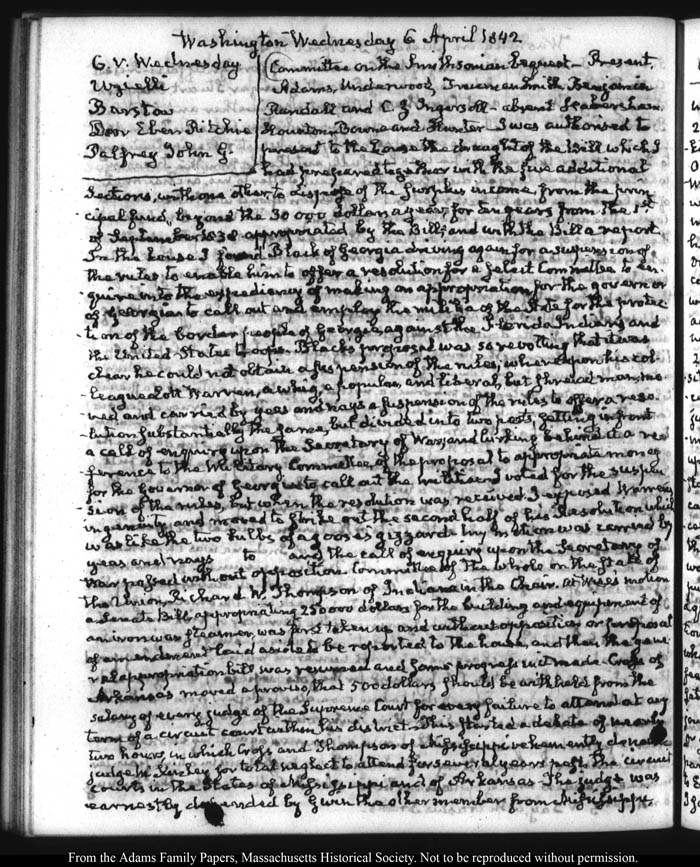 Washington Wednesday 6 April 1842.
6. V. Wednesday
Uzielli
Barstow
Door Eben Ritchie
Palfrey John G.
Committee on the Smithsonian Bequest – Present,
Adams, Underwood, Truman Smith Benjamin
Randall and C. J. Ingersoll – absent Habersham
Houston, Bowne and Hunter I was authorised to
present to the House the draught of the Bill which I
had prepared together with the five additional
Sections, with one other, to dispose of the surplus income, from the prin
cipal fund, beyond the 30 000 dollars a year, for ten years from the 1st
of September 1838 appropriated by the Bill; and with the Bill a report.
In the house I found Black of Georgia driving again for a suspension of
the rules to enable him to offer a resolution for a select Committee to en-
quire into the expediency of making an appropriation for the governor
of Georgia to call out and employ the militia of the State for the protec-
tion of the border people of Georgia, against the Florida Indians and
the United States troops. Black's proposal was so revolting that it was
clear he could not obtain a suspension of the rules; whereupon his col-
league Lott Warren, a whig, a popular, and liberal, but shrewd man, mo
ved and carried by yeas and nays a suspension of the rules to offer a reso
lution substantially the same, but divided into two parts, putting in front
a call of enquiry upon the Secretary of War, and lurking behind it a re
ference to the Military Committee, of the proposal to appropriate money
for the Governor of Georgia to call out the militia. I voted for the suspen
sion of the rules, but when the resolution was received I exposed Warren's
ingenuity, and moved to strike out the second half of his Resolution which
was like the two hills of a goose's gizzard. My motion was carried by
yeas and nays to and the call of enquiry upon the Secretary of
War passed without opposition. Committee of the whole on the State of
the Union, Richard W. Thompson of Indiana in the Chair. At Wise's motion
a Senate Bill appropriating 250 000 dollars for the building and equipment of
an iron war steamer was first taken up and without opposition or proposal
of amendment laid aside to be reported to the house, and then the gene
ral appropriation bill was resumed and some progress in it made. Cross of
Arkansas moved a proviso, that 500 dollars should be withheld from the
salary of every judge of the Supreme Court for every failure to attend at any
term of a circuit court within his district. This started a debate of nearly
two hours, in which Cross and Thompson of Mississippi vehemently denounced
judge McKinley for total neglect to attend for several years past the circuit
courts in the States of Mississippi and of Arkansas. The judge was
earnestly defended by Gwin the other member from Mississippi.
From the Adams Family Papers, Massachusetts Historical Society. Not to be reproduced without permission.